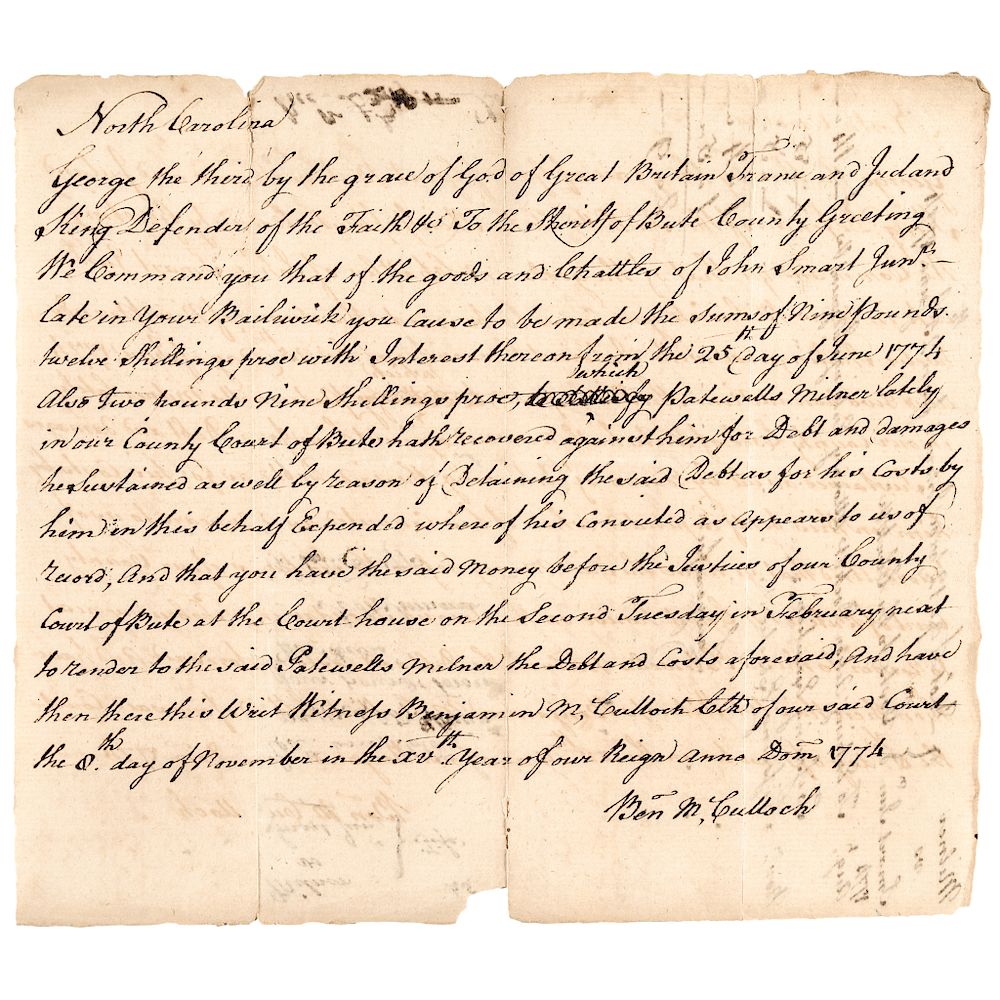 North Carolina
George the third by the grace of God of Great Britain France and Ireland
King Defender of the Faith &c To the Sheriff of Bute County Greeting
We Command you that of the goods and Chattles of John Smart Junr.
late in Your Bailiwick you Cause to be made the sums of Nine Pounds
twelve Shillings proc with Interest thereon from the 25th day of June 1774
Also Two pounds Nine Shillings proc, which Patewells Milner lately
in our County Court of Bute hath recovered against him for Debt and damages
he Sustained as well by reason of Detaining the said Debt as for his Costs by
him in this behalf Expended where of his Convicted as Appears to us of
record, And that you have the said Money before the Justices of our County
Court of Bute at the Court house on the Second Tuesday in February next
to render to the said Patewells Milner the Debt and Costs aforesaid, And have
then there this Writ Witness Benjamin Mc Culloch Clk of our said Court
the 8th. day of November in the XVth. Year of our Reign Anno Dom 1774
Ben Mc Culloch